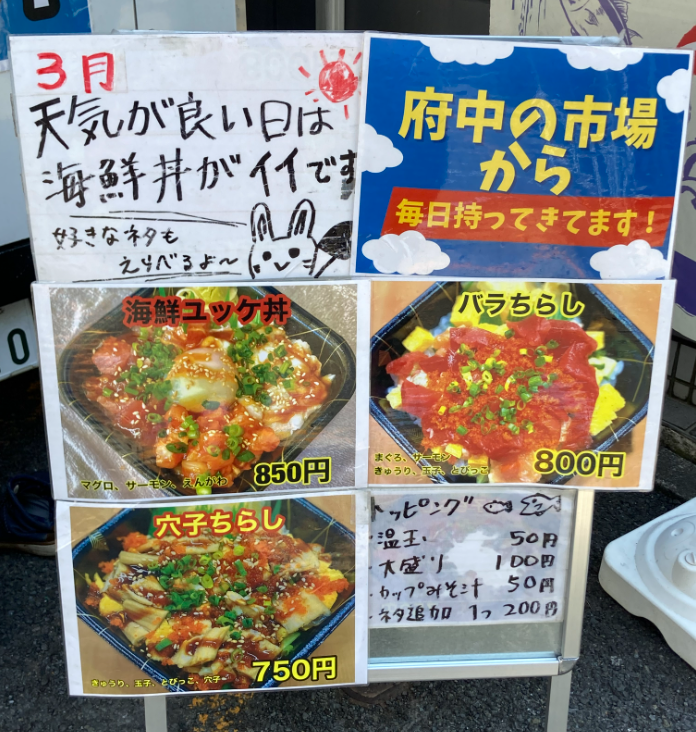 3月
天気が良い日は
海鮮丼がイイです
好きなネタも
えらべるよ〜
府中の市場
から
毎日持ってきてます！
海鮮ユッケ丼
マグロ、サーモン、えんがわ
850円
バラちらし
まぐろ、サーモン
きゅうり、玉子、とびっこ
800円
穴子ちらし
きゅうり、玉子、とびっこ、穴子
750円
トッピング
・温玉 50円
・大盛り 100円
・カップみそ汁 50円
・ネタ追加 1つ 200円